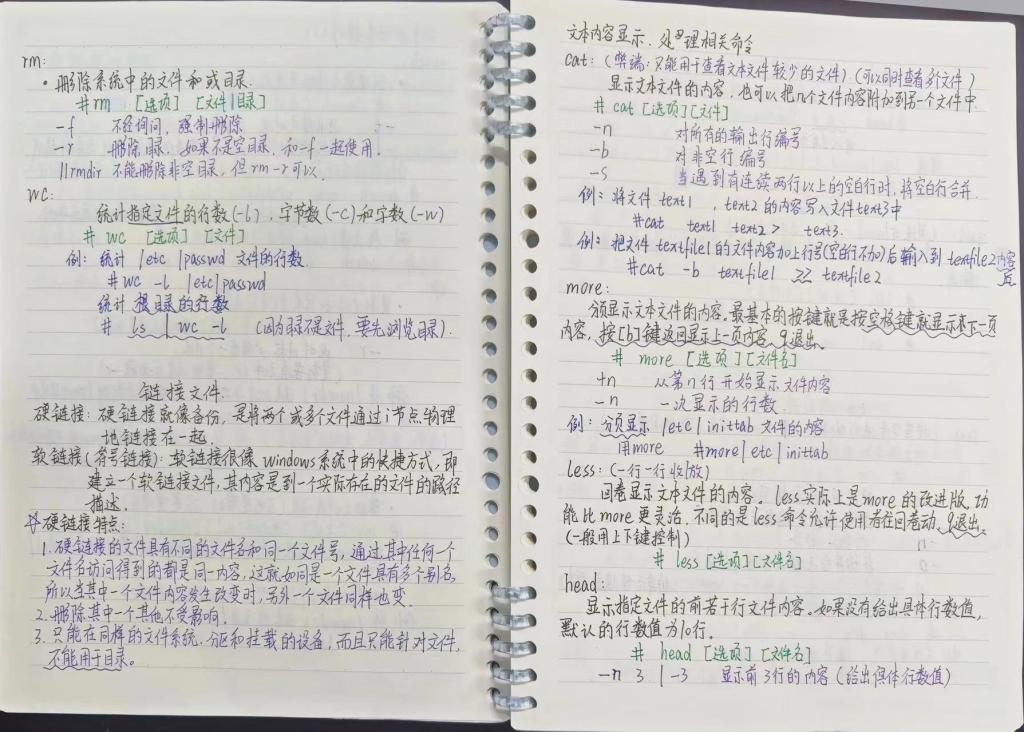 rm:
· 删除系统中的文件和或目录.
# rm [选项] [文件|目录]
-f 不经询问，强制删除
-r 删除目录，如果不是空目录，和-f一起使用.
||rmdir 不能删除非空目录，但rm-r可以.
wc:
统计指定文件的行数(-l)，字节数(-c)和字数(-w)
# wc [选项] [文件]
例: 统计 |etc |passwd 文件的行数.
#wc -l |etc|passwd
统计 根目录的行数
# ls | wc -l (因为目录不是文件，要先浏览目录).
链接文件
硬链接: 硬链接就像备份，是将两个或多个文件通过i节点物理
地链接在一起.
软链接(符号链接): 软链接很像windows系统中的快捷方式，即
建立一个软链接文件，其内容是到一个实际存在的文件的路径
描述.
☆硬链接特点:
1. 硬链接的文件具有不同的文件名和同一个文件号，通过其中任何一个
文件名访问得到的都是同一内容，这就如同是一个文件具有多个别名，
所以当其中一个文件内容发生改变时，另外一个文件同样也变.
2. 删除其中一个其他不受影响.
3. 只能在同样的文件系统，分区和挂载的设备，而且只能针对文件，
不能用于目录。
文本内容显示、处理相关命令
cat: (弊端: 只能用于查看文本文件较少的文件) (可以同时查看多个文件)
显示文本文件的内容，也可以把几个文件内容附加到另一个文件中.
# cat [选项][文件]
-n 对所有的输出行编号
-b 对非空行编号
-s 当遇到有连续两行以上的空白行时，将空白行合并.
例: 将文件 text1 ，text2的内容写入文件text3中
#cat text1 text2 > text3.
例: 把文件 textfile1的文件内容加上行号(空白行不加)后输入到 textfile2内容
后
#cat -b textfile1 >> textfile2
more:
分页显示文本文件的内容。最基本的按键就是按空格键就显示下一页
内容，按[b]键返回显示上一页内容，q退出.
# more [选项][文件名]
+n 从第n行开始显示文件内容
-n 一次显示的行数
例: 分页显示 |etc|inittab 文件的内容
用more #more|etc|inittab
less: (一行一行收|放)
回卷显示文本文件的内容。less实际上是more的改进版，功
能比more更灵活，不同的是less命令允许使用者往回卷动. q退出.
(一般用上下键控制)
# less [选项][文件名]
head:
显示指定文件的前若干行文件内容。如果没有给出具体行数值，
默认的行数值为10行.
# head [选项][文件名]
-n 3 | -3 显示前3行的内容 (给出具体行数值)